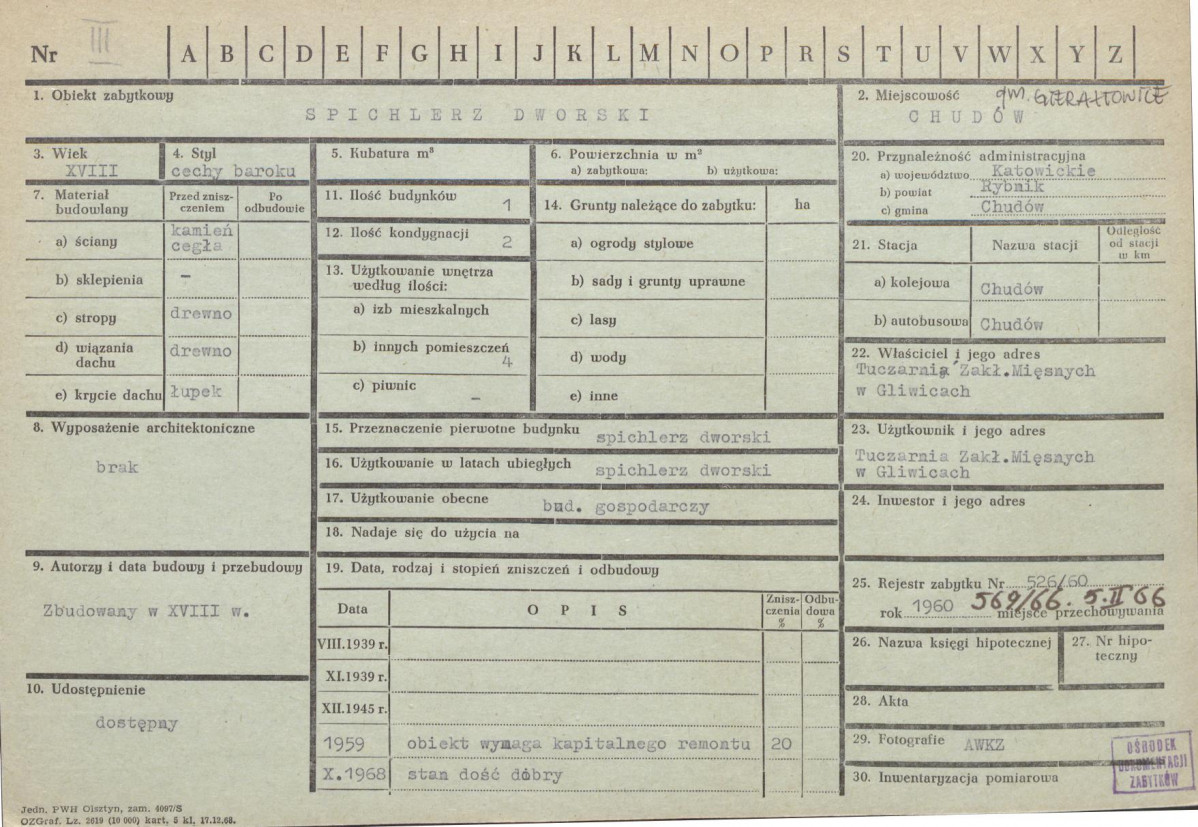 Nr III A B C D E F G H I J K L M N O P R S T U V W X Y Z
1. Obiekt zabytkowy
SPICHLERZ DWORSKI
2. Miejscowość gm. GIERAŁTOWICE
CHUDÓW
3. Wiek
XVIII
4. Styl
cechy baroku
5. Kubatura m³
6. Powierzchnia w m²
a) zabytkowa: b) użytkowa:
7. Materiał budowlany
Przed zniszczeniem
Po odbudowie
a) ściany kamień cegła
b) sklepienia –
c) stropy drewno
d) wiązania dachu drewno
e) krycie dachu łupek
8. Wyposażenie architektoniczne
brak
9. Autorzy i data budowy i przebudowy
Zbudowany w XVIII w.
10. Udostępnienie
dostępny
11. Ilość budynków 1
12. Ilość kondygnacji 2
13. Użytkowanie wnętrza
według ilości:
a) izb mieszkalnych
b) innych pomieszczeń 4
c) piwnic –
14. Grunty należące do zabytku: ha
a) ogrody stylowe
b) sady i grunty uprawne
c) lasy
d) wody
e) inne
15. Przeznaczenie pierwotne budynku spichlerz dworski
16. Użytkowanie w latach ubiegłych spichlerz dworski
17. Użytkowanie obecne bud. gospodarczy
18. Nadaje się do użycia na
19. Data, rodzaj i stopień zniszczeń i odbudowy
Data OPIS Zniszczenia % Odbudowa %
VIII.1939 r.
XI.1939 r.
XII.1945 r.
1959 obiekt wymaga kapitalnego remontu 20
X.1968 stan dość dobry
20. Przynależność administracyjna
a) województwo Katowickie
b) powiat Rybnik
c) gmina Chudów
21. Stacja Nazwa stacji Odległość od stacji w km
a) kolejowa Chudów
b) autobusowa Chudów
22. Właściciel i jego adres
Tuczarnia Zakł.Mięsnych
w Gliwicach
23. Użytkownik i jego adres
Tuczarnia Zakł.Mięsnych
w Gliwicach
24. Inwestor i jego adres
25. Rejestr zabytku Nr 526/60
569/66. 5.II 66
rok 1960 miejsce przechowywania
26. Nazwa księgi hipotecznej
27. Nr hipoteczny
28. Akta
29. Fotografie AWKZ
30. Inwentaryzacja pomiarowa
OŚRODEK
DOKUMENTACJI
ZABYTKÓW
Jedn. PWH Olsztyn, zam. 4097/S
OZGraf. Lz. 2619 (10 000) kart. 5 kl. 17.12.68.